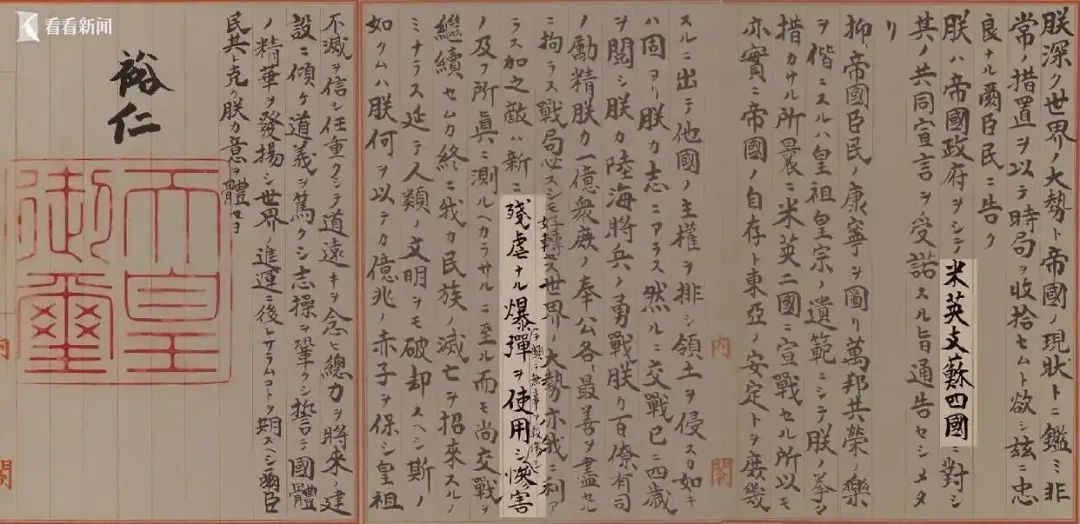 看看新闻
朕深ク世界ノ大勢ト帝國ノ現狀トニ鑑ミ非
常ノ措置ヲ以テ時局ヲ收拾セムト欲シ茲ニ忠
良ナル爾臣民ニ告ク
朕ハ帝國政府ヲシテ米英支蘇四國ニ對シ
其ノ共同宣言ヲ受諾スル旨通告セシメタ
リ
抑〻帝國臣民ノ康寧ヲ圖リ萬邦共榮ノ樂
ヲ偕ニスルハ皇祖皇宗ノ遺範ニシテ朕ノ拳〻
措カサル所曩ニ米英二國ニ宣戰セル所以モ
亦實ニ帝國ノ自存ト東亞ノ安定トヲ庶幾
内
閣
スルニ出テ他國ノ主權ヲ排シ領土ヲ侵スカ如キ
ハ固ヨリ朕カ志ニアラス然ルニ交戰已ニ四歲
ヲ閲シ朕カ陸海將兵ノ勇戰朕カ百僚有司
ノ勵精朕カ一億衆庶ノ奉公各〻最善ヲ盡セル
ニ拘ラス戰局必スシモ好轉セス世界ノ大勢亦我ニ利ア
ラス加之敵ハ新ニ殘虐ナル爆彈ヲ使用シテ頻ニ無辜ヲ殺傷シ慘害
ノ及フ所眞ニ測ルヘカラサルニ至ル而モ尚交戰ヲ
繼續セムカ終ニ我カ民族ノ滅亡ヲ招來スルノ
ミナラス延テ人類ノ文明ヲモ破却スヘシ斯ノ
如クムハ朕何ヲ以テカ億兆ノ赤子ヲ保シ皇祖
不滅ヲ信シ任重クシテ道遠キヲ念ヒ總力ヲ將來ノ建
設ニ傾ケ道義ヲ篤クシ志操ヲ鞏クシ誓テ國體
ノ精華ヲ發揚シ世界ノ進運ニ後レサラムコトヲ期スヘシ爾臣
民其レ克ク朕カ意ヲ體セヨ
裕仁
天皇
御璽
内
閣